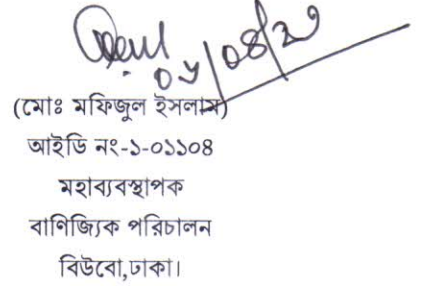 (মোঃ মফিজুল ইসলাম)
আইডি নং-১-০১১০৪
মহাব্যবস্থাপক
বাণিজ্যিক পরিচালন
বিউবো,ঢাকা।